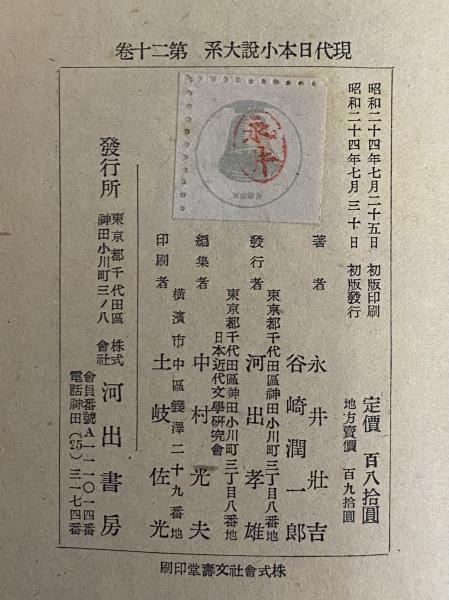 現代日本小說大系　第二十卷
昭和二十四年七月二十五日　初版印刷
昭和二十四年七月三十日　初版發行
定價　百八拾圓
地方賣價　百九拾圓
著者　永井壯吉
谷崎潤一郎
東京都千代田區神田小川町三丁目八番地
發行者　河出孝雄
東京都千代田區神田小川町三丁目八番地
日本近代文學硏究會
編集者　中村光夫
橫濱市中區簔澤二十九番地
印刷者　土岐佐光
發行所　東京都千代田區
神田小川町三ノ八
株式會社　河出書房
會員番號A一一〇一四番
電話神田(25)三一七四番
株式會社文壽堂印刷
永井